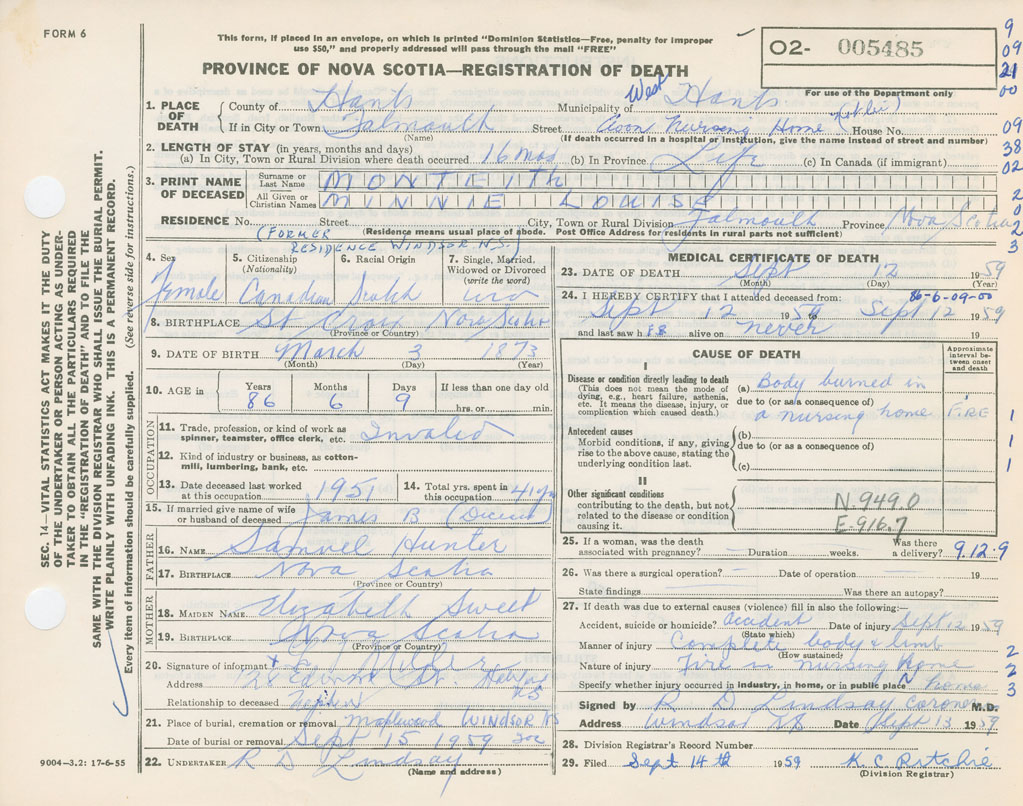 FORM 6
This form, if placed in an envelope, on which is printed "Dominion Statistics—Free, penalty for improper
use $50," and properly addressed will pass through the mail "FREE"
PROVINCE OF NOVA SCOTIA—REGISTRATION OF DEATH
O2- 005485
For use of the Department only
9
09
21
00
09
38
02
2
0
2
3
1. PLACE OF DEATH
County of Hants Municipality of West Hants
If in City or Town Falmouth Street Avon Nursing Home House No.
(Name) (If death occurred in a hospital or institution, give the name instead of street and number)
2. LENGTH OF STAY (in years, months and days)
(a) In City, Town or Rural Division where death occurred 16 mos (b) In Province Life (c) In Canada (if immigrant)
3. PRINT NAME OF DECEASED
Surname or Last Name MONTEITH
All Given or Christian Names MINNIE LOUISE
RESIDENCE No. Street City, Town or Rural Division Falmouth Province Nova Scotia
(Residence means usual place of abode. Post Office Address for residents in rural parts not sufficient)
(FORMER
RESIDENCE WINDSOR N.S.)
4. Sex Female
5. Citizenship (Nationality) Canadian
6. Racial Origin Scotch
7. Single, Married, Widowed or Divorced (write the word) wid
8. BIRTHPLACE St Croix Nova Scotia
(Province or Country)
9. DATE OF BIRTH March 3 1873
(Month) (Day) (Year)
10. AGE in Years 86 Months 6 Days 9 If less than one day old hrs. or min.
OCCUPATION
11. Trade, profession, or kind of work as spinner, teamster, office clerk, etc. Invalid
12. Kind of industry or business, as cotton-mill, lumbering, bank, etc.
13. Date deceased last worked at this occupation 1951
14. Total yrs. spent in this occupation 41 yrs
15. If married give name of wife or husband of deceased James B
FATHER
16. NAME Samuel Hunter
17. BIRTHPLACE Nova Scotia
(Province or Country)
MOTHER
18. MAIDEN NAME Elizabeth Sweet
19. BIRTHPLACE Nova Scotia
(Province or Country)
20. Signature of informant x E Miller
Address 128 Edward St Halifax
N S
Relationship to deceased Nephew
21. Place of burial, cremation or removal Maplewood WINDSOR NS
Date of burial or removal Sept 15 1959
22. UNDERTAKER R D Lindsay
(Name and address)
MEDICAL CERTIFICATE OF DEATH
23. DATE OF DEATH Sept 12 1959
(Month) (Day) (Year)
86-6-09-00
24. I HEREBY CERTIFY that I attended deceased from:
Sept 12 1959 to Sept 12 1959
and last saw her alive on never 19
CAUSE OF DEATH
Approximate interval between onset and death
I
Disease or condition directly leading to death
(This does not mean the mode of dying, e.g., heart failure, asthenia, etc. It means the disease, injury, or complication which caused death.)
(a) Body burned in
due to (or as a consequence of)
a nursing home FIRE
Antecedent causes
Morbid conditions, if any, giving rise to the above cause, stating the underlying condition last.
(b)
due to (or as a consequence of)
(c)
1
1
1
II
Other significant conditions
contributing to the death, but not related to the disease or condition causing it.
N-949.0
E-916.7
25. If a woman, was the death associated with pregnancy? — Duration weeks. Was there a delivery?
9.12.9
26. Was there a surgical operation? — Date of operation — 19
State findings Was there an autopsy?
27. If death was due to external causes (violence) fill in also the following:—
Accident, suicide or homicide? accident Date of injury Sept 12 1959
(State which)
Manner of injury Complete body & limb
(How sustained)
Nature of injury Fire in nursing home
Specify whether injury occurred in industry, in home, or in public place N home
2
2
3
Signed by R D Lindsay Coroner M.D.
Address Windsor NS Date Sept 13 1959
28. Division Registrar's Record Number
29. Filed Sept 14th 1959 K. C Ritchie
(Division Registrar)
9004—3.2: 17-6-55
SEC. 14—VITAL STATISTICS ACT MAKES IT THE DUTY
OF THE UNDERTAKER OR PERSON ACTING AS UNDER-
TAKER TO OBTAIN ALL THE PARTICULARS REQUIRED
IN THE "REGISTRATION OF DEATH" AND TO FILE THE
SAME WITH THE DIVISION REGISTRAR WHO SHALL ISSUE THE BURIAL PERMIT.
WRITE PLAINLY WITH UNFADING INK. THIS IS A PERMANENT RECORD.
Every item of information should be carefully supplied. (See reverse side for instructions.)